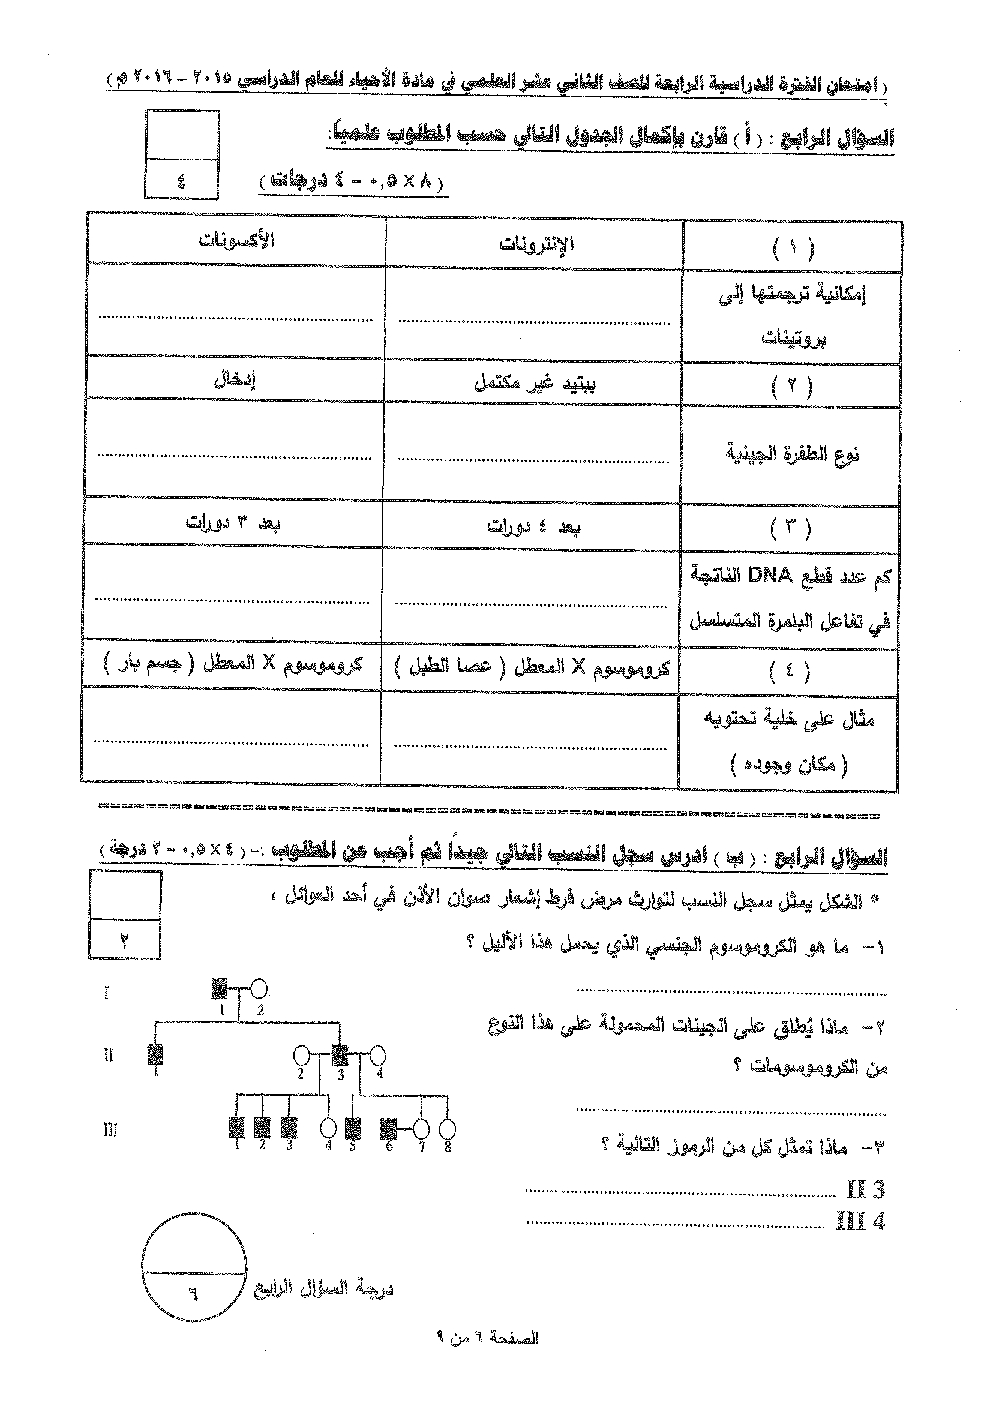 ( امتحان الفترة الدراسية الرابعة للصف الثاني عشر العلمي في مادة الأحياء للعام الدراسي ٢٠١٥ – ٢٠١٦ م )
السؤال الرابع : ( أ ) قارن بإكمال الجدول التالي حسب المطلوب علمياً:
( ٨ × ٠,٥ – ٤ درجات )
٤
( ١ ) الإنترونات الأكسونات
إمكانية ترجمتها إلى
بروتينات
( ٢ ) ببتيد غير مكتمل إدخال
نوع الطفرة الجينية
( ٣ ) بعد ٤ دورات بعد ٣ دورات
كم عدد قطع DNA الناتجة
في تفاعل البلمرة المتسلسل
( ٤ ) كروموسوم X المعطل ( عصا الطبل ) كروموسوم X المعطل ( جسم بار )
مثال على خلية تحتويه
( مكان وجوده )
السؤال الرابع : ( ب ) ادرس سجل النسب التالي جيداً ثم أجب عن المطلوب :– ( ٤ × ٠,٥ – ٢ درجة )
* الشكل يمثل سجل النسب لتوارث مرض فرط إشعار صوان الأذن في أحد العوائل ،
٢
١– ما هو الكروموسوم الجنسي الذي يحمل هذا الأليل ؟
I
1 2
٢– ماذا يُطلق على الجينات المحمولة على هذا النوع
من الكروموسومات ؟
II
1 2 3 4
III
1 2 3 4 5 6 7 8
٣– ماذا تمثل كل من الرموز التالية ؟
II 3
III 4
٦
درجة السؤال الرابع
الصفحة ٦ من ٩